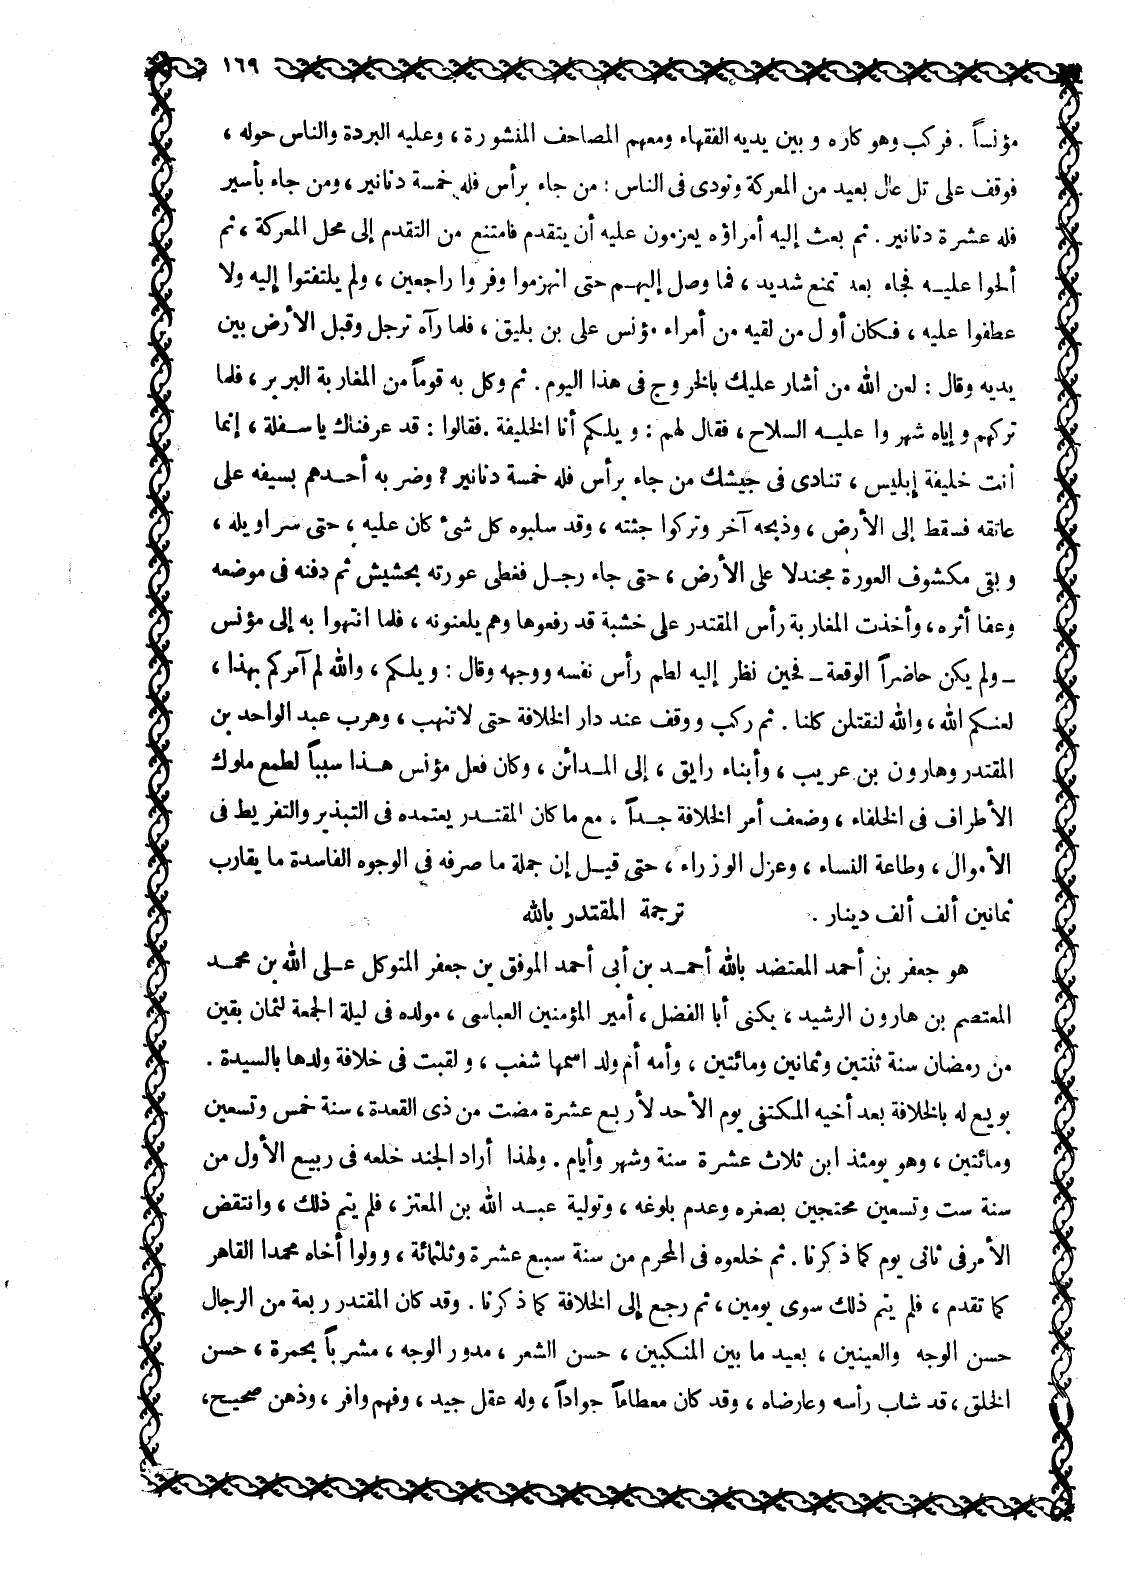 ١٦٩
مؤنساً . فركب وهو كاره و بين يديه الفقهاء ومعهم المصاحف المنشورة ، وعليه البردة والناس حوله ،
فوقف على تل عال بعيد من المعركة ونودى فى الناس : من جاء برأس فله خمسة دنانير ، ومن جاء بأسير
فله عشرة دنانير . ثم بعث إليه أمراؤه يعزمون عليه أن يتقدم فامتنع من التقدم إلى محل المعركة ، ثم
ألحوا عليه فجاء بعد تمنع شديد ، فما وصل إليهم حتى انهزموا وفروا راجعين ، ولم يلتفتوا إليه ولا
عطفوا عليه ، فكان أول من لقيه من أمراء مؤنس على بن بليق ، فلما رآه ترجل وقبل الأرض بين
يديه وقال : لعن الله من أشار عليك بالخروج فى هذا اليوم . ثم وكل به قوماً من المغاربة البربر ، فلما
تركهم و إياه شهروا عليه السلاح ، فقال لهم : ويلكم أنا الخليفة . فقالوا : قد عرفناك يا سفلة ، إنما
أنت خليفة إبليس ، تنادى فى جيشك من جاء برأس فله خمسة دنانير ? وضربه أحدهم بسيفه على
عاتقه فسقط إلى الأرض ، وذبحه آخر وتركوا جثته ، وقد سلبوه كل شىء كان عليه ، حتى سراويله ،
و بقى مكشوف العورة مجندلا على الأرض ، حتى جاء رجل فغطى عورته بحشيش ثم دفنه فى موضعه
وعفا أثره ، وأخذت المغاربة رأس المقتدر على خشبة قد رفعوها وهم يلعنونه ، فلما انتهوا به إلى مؤنس
ـ ولم يكن حاضراً الوقعة ـ فحين نظر إليه لطم رأس نفسه ووجهه وقال : ويلكم ، والله لم آمركم بهذا ،
لعنكم الله ، والله لنقتلن كلنا . ثم ركب ووقف عند دار الخلافة حتى لا تنهب ، وهرب عبد الواحد بن
المقتدر وهارون بن عريب ، وأبناء رايق ، إلى المدائن ، وكان فعل مؤنس هذا سبباً لطمع ملوك
الأطراف فى الخلفاء ، وضعف أمر الخلافة جداً ، مع ما كان المقتدر يعتمده فى التبذير والتفريط فى
الأموال ، وطاعة النساء ، وعزل الوزراء ، حتى قيل إن جملة ما صرفه فى الوجوه الفاسدة ما يقارب
ثمانين ألف ألف دينار . ترجمة المقتدر بالله
هو جعفر بن أحمد المعتضد بالله أحمد بن أبى أحمد الموفق بن جعفر المتوكل على الله بن محمد
المعتصم بن هارون الرشيد ، يكنى أبا الفضل ، أمير المؤمنين العباسى ، مولده فى ليلة الجمعة لثمان بقين
من رمضان سنة ثنتين وثمانين ومائتين ، وأمه أم ولد اسمها شغب ، ولقبت فى خلافة ولدها بالسيدة .
بويع له بالخلافة بعد أخيه المكتفى يوم الأحد لأربع عشرة مضت من ذى القعدة ، سنة خمس وتسعين
ومائتين ، وهو يومئذ ابن ثلاث عشرة سنة وشهر وأيام . ولهذا أراد الجند خلعه فى ربيع الأول من
سنة ست وتسعين محتجين بصغره وعدم بلوغه ، وتولية عبد الله بن المعتز ، فلم يتم ذلك ، وانتقض
الأمر فى ثانى يوم كما ذكرنا . ثم خلعوه فى المحرم من سنة سبع عشرة وثلثمائة ، وولوا أخاه محمدا القاهر
كما تقدم ، فلم يتم ذلك سوى يومين ، ثم رجع إلى الخلافة كما ذكرنا . وقد كان المقتدر ربعة من الرجال
حسن الوجه والعينين ، بعيد ما بين المنكبين ، حسن الشعر ، مدور الوجه ، مشرباً بحمرة ، حسن
الخلق ، قد شاب رأسه وعارضاه ، وقد كان معطاءاً جواداً ، وله عقل جيد ، وفهم وافر ، وذهن صحيح ،